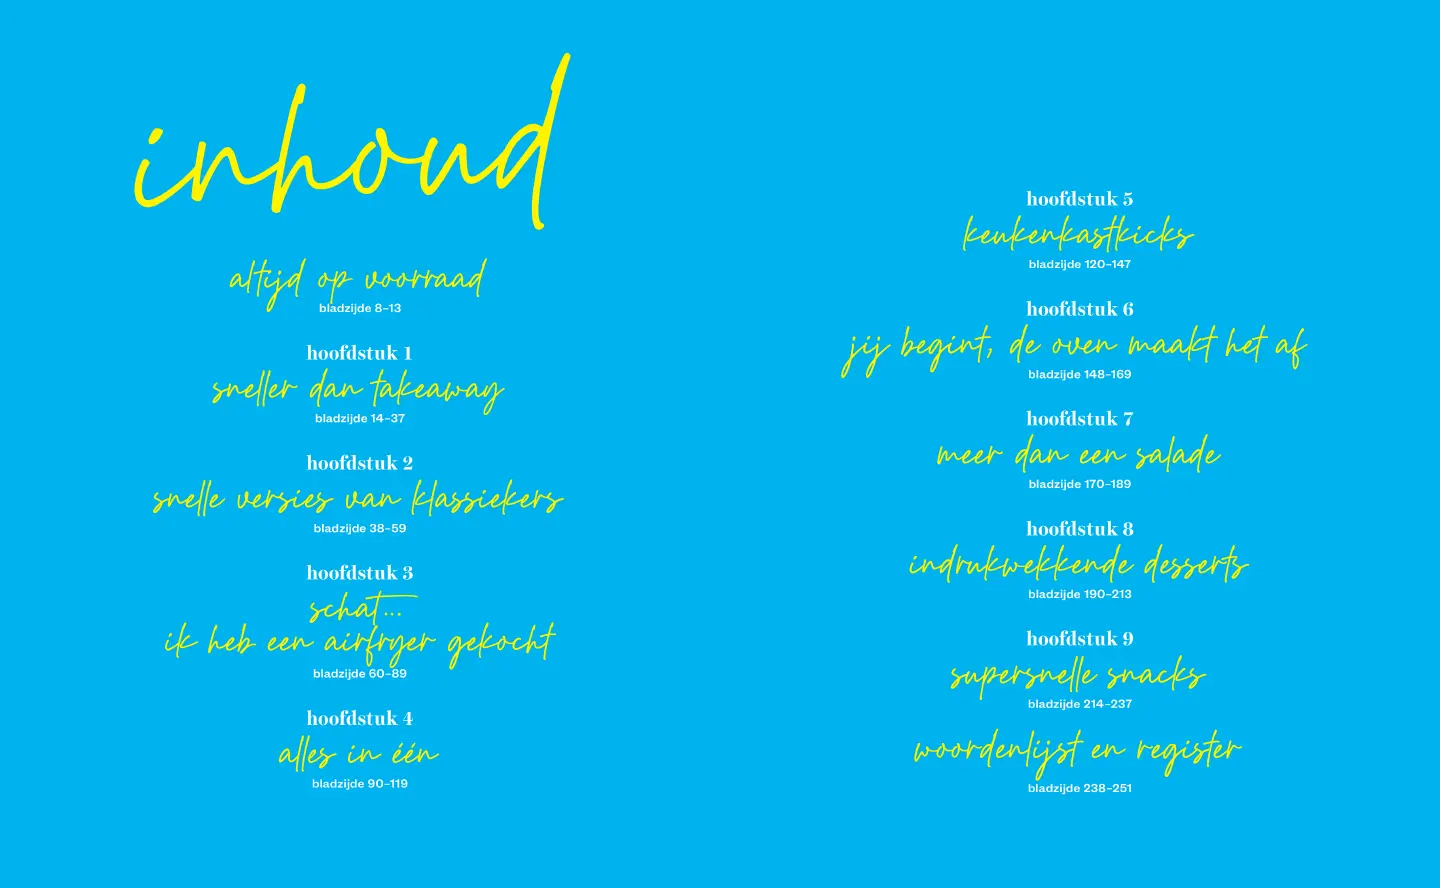 inhoud
altijd op voorraad
bladzijde 8–13
hoofdstuk 1
sneller dan takeaway
bladzijde 14–37
hoofdstuk 2
snelle versies van klassiekers
bladzijde 38–59
hoofdstuk 3
schat...
ik heb een airfryer gekocht
bladzijde 60–89
hoofdstuk 4
alles in één
bladzijde 90–119
hoofdstuk 5
keukenkastkicks
bladzijde 120–147
hoofdstuk 6
jij begint, de oven maakt het af
bladzijde 148–169
hoofdstuk 7
meer dan een salade
bladzijde 170–189
hoofdstuk 8
indrukwekkende desserts
bladzijde 190–213
hoofdstuk 9
supersnelle snacks
bladzijde 214–237
woordenlijst en register
bladzijde 238–251